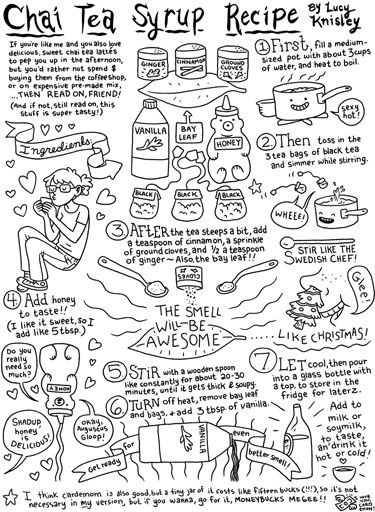 Chai Tea Syrup Recipe By Lucy
Knisley
If you're like me and you also love
delicious, sweet chai tea lattés
to pep you up in the afternoon,
but you'd rather not spend $
buying them from the coffeeshop,
or on expensive pre-made mix,
...THEN READ ON, FRIEND!
(And if not, still read on, this
stuff is super tasty!)
Ingredients:
GINGER
CINNAMON
GROUND
CLOVES
VANILLA
BAY
LEAF
HONEY
BLACK
BLACK
BLACK
① First, fill a medium-
sized pot with about 3 cups
of water, and heat to boil.
sexy
hot?
② Then toss in the
3 tea bags of black tea
and simmer while stirring.
WHEEE!
STIR LIKE THE
SWEDISH CHEF!
③ AFTER the tea steeps a bit, add
a teaspoon of cinnamon, a sprinkle
of ground cloves, and ½ a teaspoon
of ginger ~ Also the bay leaf!!
CLOVES
THE SMELL
WILL BE
AWESOME
...LIKE CHRISTMAS!
Glee!
④ Add honey
to taste!!
(I like it sweet, so I
add like 5 tbsp.)
Do you
really
need so
much?
HONEY
SHADUP
honey is
DELICIOUS!
okay,
Augustus
Gloop!
⑤ STIR with a wooden spoon
like constantly for about 20-30
minutes, until it gets thick & soupy.
⑥ Turn off heat, remove bay leaf
and bags, + add 3 tbsp of vanilla.
Get ready
for
VANILLA
even
better smell!
⑦ LET cool, then pour
into a glass bottle with
a top, to store in the
fridge for laterz.
Add to
milk or
soymilk,
to taste,
an' drink it
hot or cold!
☆ I think cardemom is also good, but a tiny jar of it costs like fifteen bucks (!!!), so it's not
necessary in my version, but if you wanna, go for it, MONEYBUCKS MEGEE!!